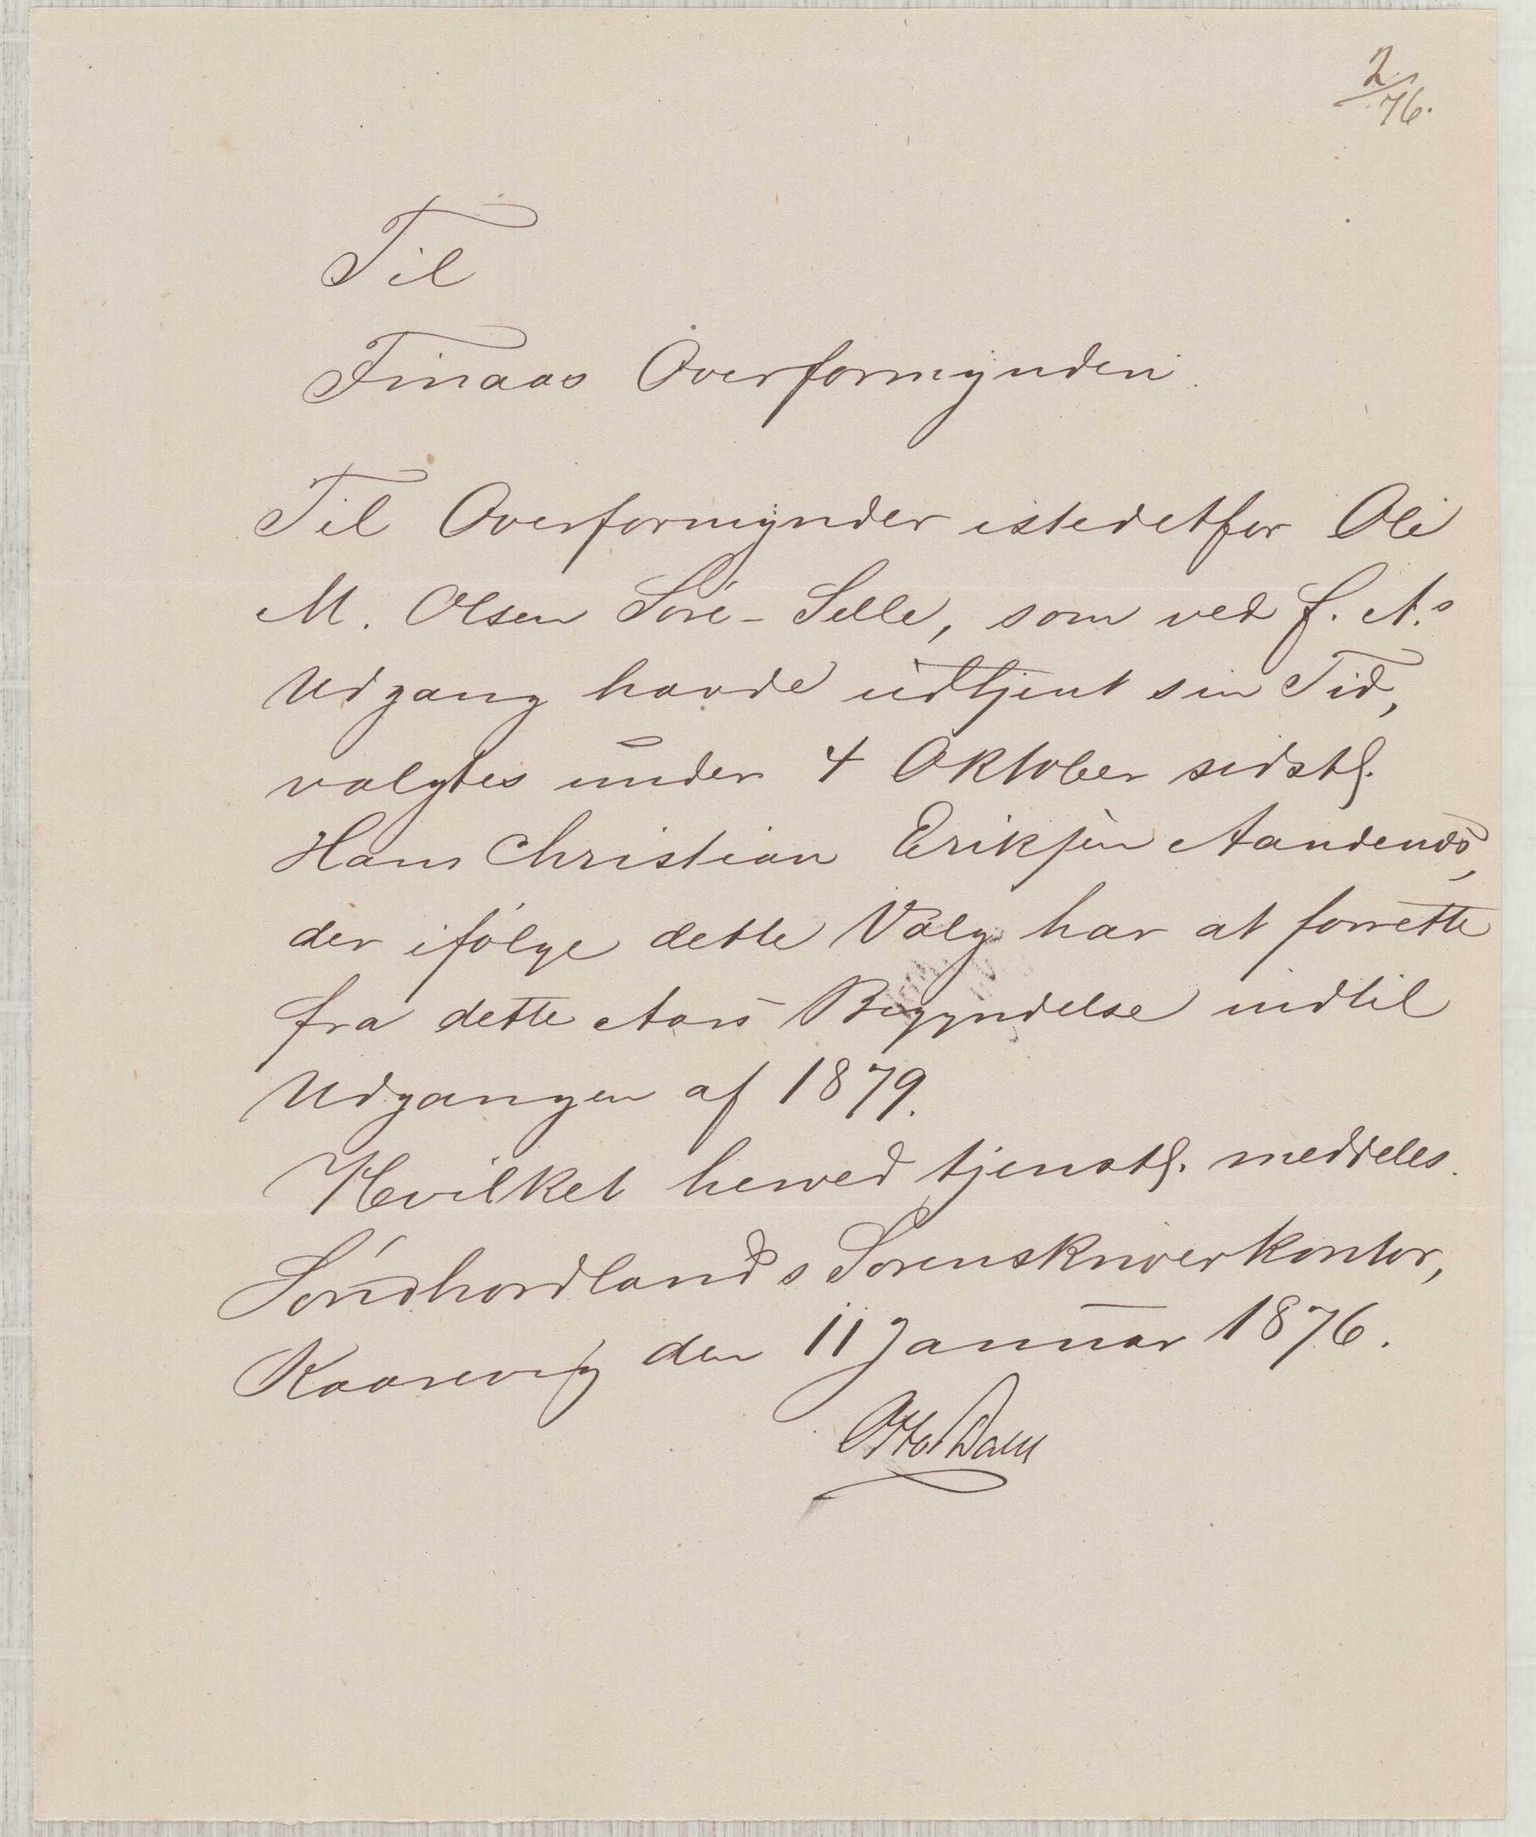 2/76.
Til
Finaas Overformynderi.
Til Overformynder istedetfor Ole
M. Olsen Söre-Selle, som ved f. A.s
Udgang havde udtjent sin Tid,
valgtes under 4 Oktober sidstl.
Hans Christian Eriksen
der ifölge dette Valg har at forrette
fra dette Aars Begyndelse indtil
Udgangen af 1879.
Hvilket herved tjenstl. meddeles.
Söndhordlands Sorenskriverkontor,
Kaarevig den 11 Januar 1876.
Otto Dahl